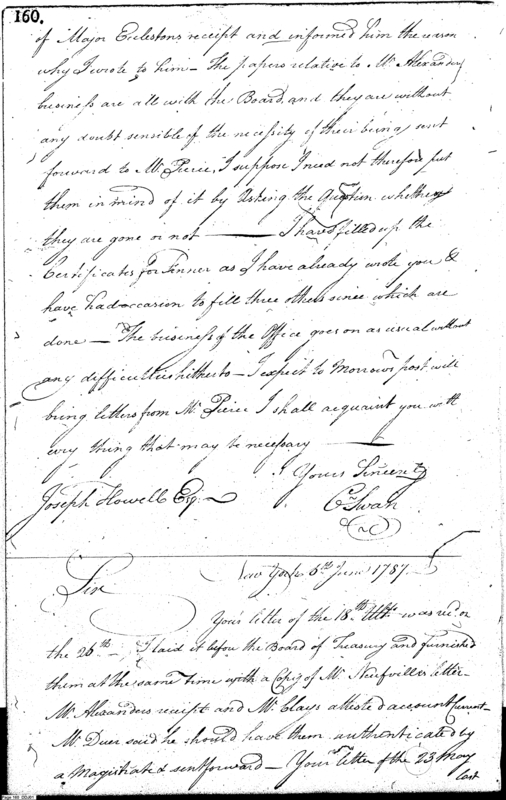 160.
of Major Eccleston's receipt and informed him the reason
why I wrote to him — The papers relative to Mr. Alexanders
business are all with the Board, and they are without
any doubt sensible of the necessity of their being sent
forward to Mr. Pierce, I suppose I need not therefore put
them in mind of it by asking the Question whether
they are gone or not — I have filled up the
Certificates for Finner as I have already wrote you &
have had occasion to fill three others since which are
done — The business of the Office goes on as usual without
any difficulties hitherto — I expect to Morrows post will
bring letters from Mr. Pierce I shall acquaint you with
every thing that may be necessary —
Yours Sincerely
Joseph Howell Esqr. — C. Swan
New York 6th June 1787.
Sir
Your letter of the 18th Ulto. was recd. on
the 26th — I laid it before the Board of Treasury and furnished
them at the same time with a Copy of Mr. Neufvilles letter —
Mr. Alexanders receipt and Mr. Clays attested account Current —
Mr. Duer said he should have them authenticated by
a Magistrate & sent forward — Your letter of the 23 May
last